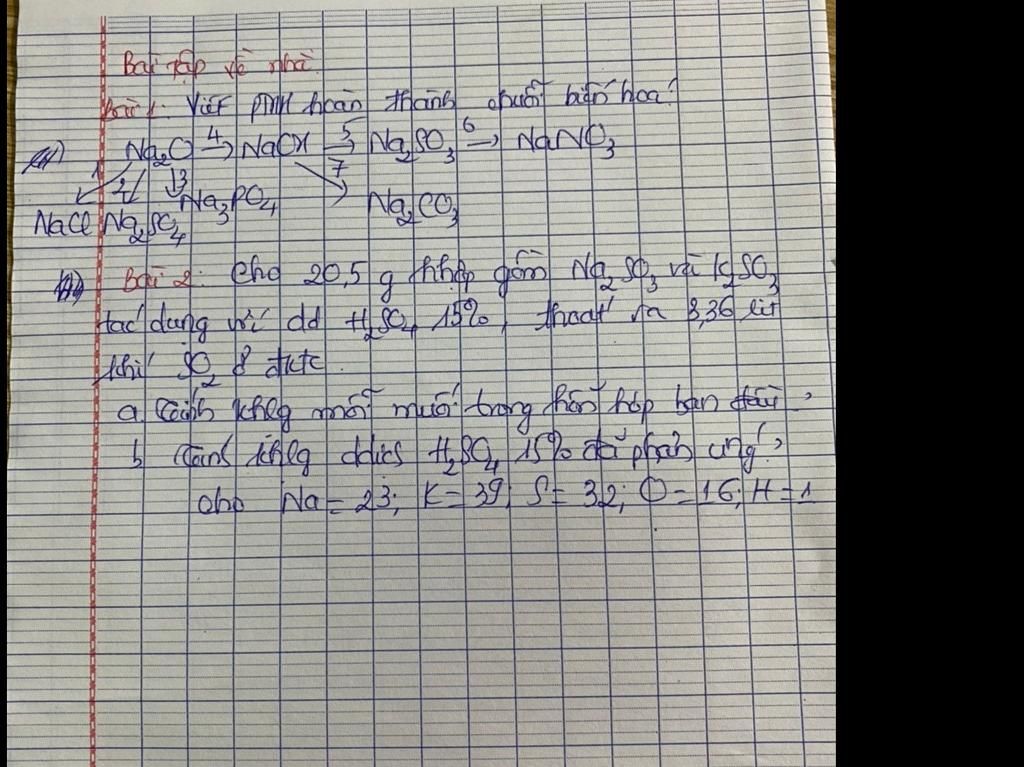 Bài tập về nhà.
Bài 1. Viết PTHH hoàn thành chuỗi biến hoá?
Na₂O 4→ NaOH 5→ Na₂SO₃ 6→ NaNO₃
1 2 3 7
NaCl Na₂SO₄ Na₃PO₄ Na₂CO₃
Bài 2: Cho 20,5 g hhợp gồm Na₂SO₃ và K₂SO₃
tác dụng với dd H₂SO₄ 15%, thoát ra 3,36 lít
khí SO₂ ở đktc.
a. Tính khlg mỗi muối trong hỗn hợp ban đầu?
b Tính khlg H₂SO₄ 15% đã phản ứng?
cho Na = 23; K = 39; S = 32; O = 16; H = 1